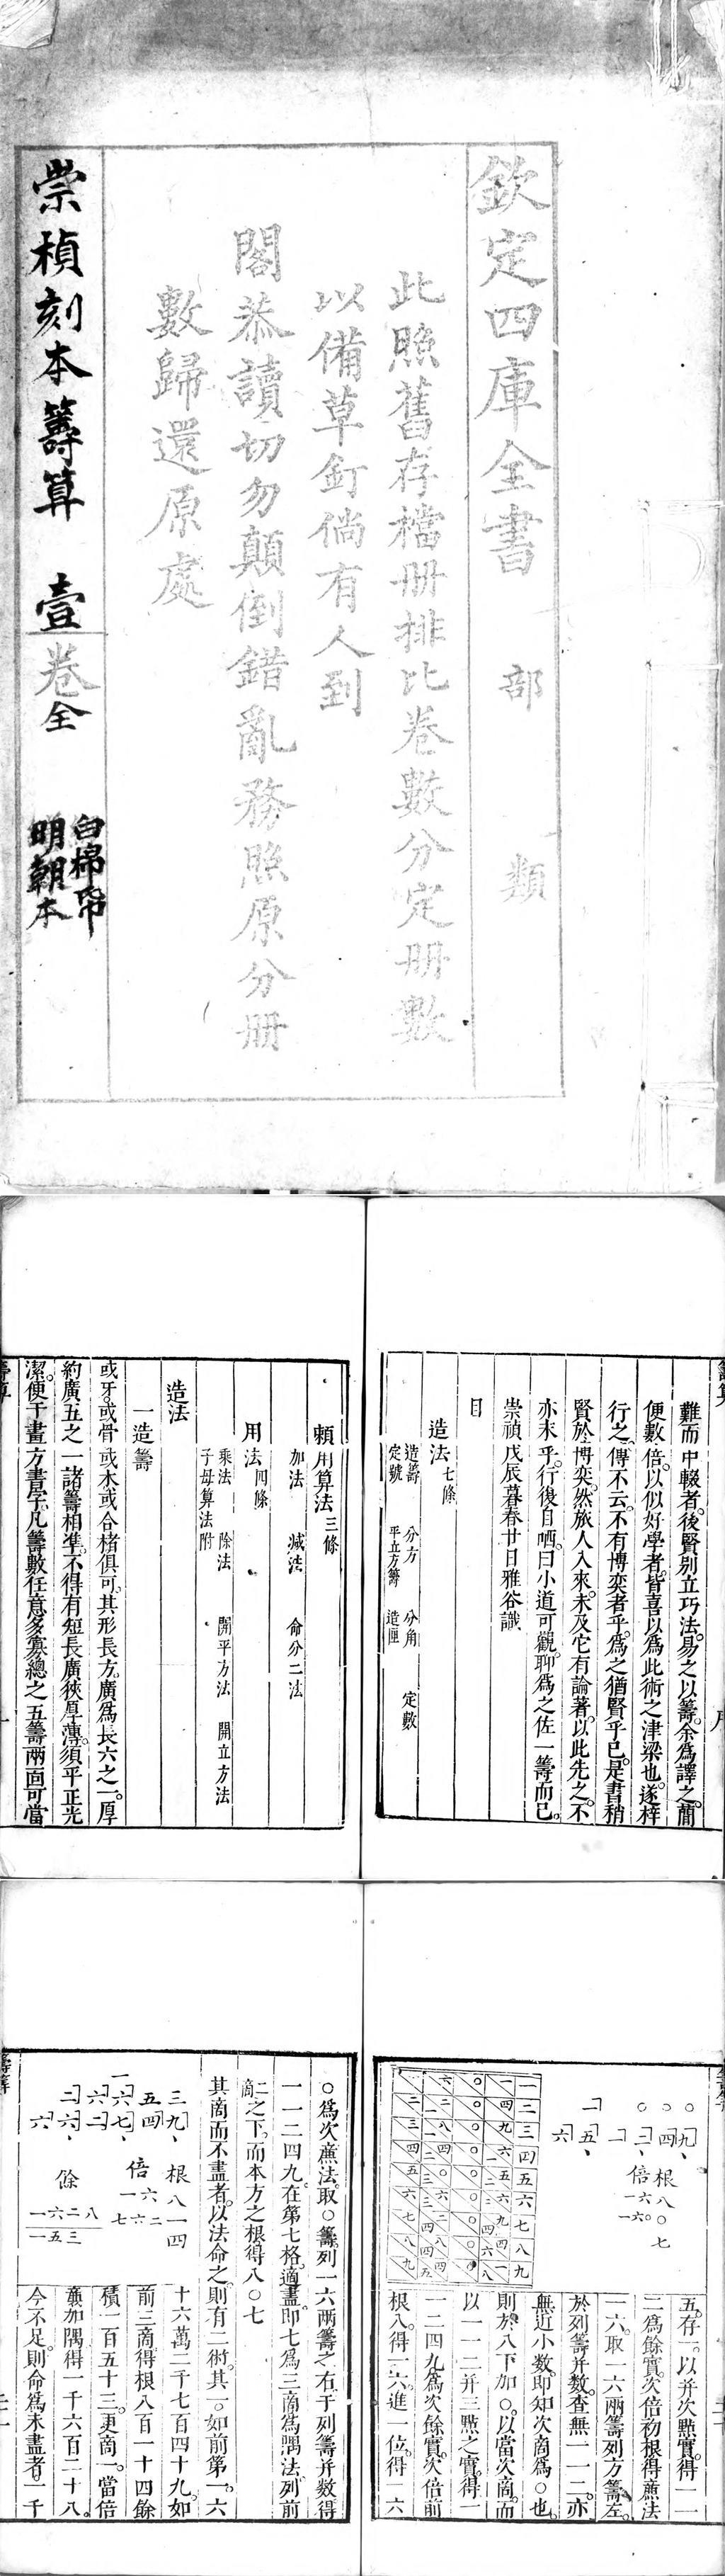 欽定四庫全書 部 類
此照舊存檔册排比卷數分定册數
以備草釘倘有人到
閣恭讀切勿顛倒錯亂務照原分册
數歸還原處
崇禎刻本籌算 壹卷全
白棉帋
明朝本
難而中輟者。後賢別立巧法。易之以籌。余為譯之。簡
便數倍。以似好學者。皆喜以為此術之津梁也。遂梓
行之。傳不云。不有博奕者乎。為之猶賢乎已。是書稍
賢於博奕。然旅人入來。未及它有論著。以此先之。不
亦末乎。行復自哂。曰小道可觀。聊為之佐一籌而已。
崇禎戊辰暮春廿日雅谷識
目
造法七條
造籌 分方 分角 定數
定號 平立方籌 造匣
賴用算法三條
加法 減法 命分二法
用法四條
乘法 除法 開平方法 開立方法
子母算法附
造法
一造籌
或牙。或骨。或木。或合楮俱可。其形長方。廣為長六之一。厚
約廣五之一。諸籌相準。不得有短長廣狹厚薄。須平正光
潔。便于畫方書字。凡籌數任意多寡。總之五籌兩面可當
籌算
根八〇七
倍一六
一六〇
一二三四五六七八九
五。存一。以并次點實。得一一
二為餘實。次倍初根得廉法
一六。取一六兩籌列方籌左。
於列籌并數。查無一一二。亦
無近小數。即知次商為〇也。
則於八下加〇。以當次商。而
以一一二并三點之實。得一
一二四九為次餘實。次倍前
根八。得一六。進一位。得一六
〇為次廉法。取〇籌列一六兩籌之右。于列籌并數得
一一二四九。在第七格。適盡。即七為三商為隅法。列前
二商之下。而本方之根得八〇七
其商而不盡者。以法命之。則有二術。其一。如前第一。六
十六萬二千七百四十九。如
前三商得根八百一十四餘
積一百五十三。更商一。當倍
廉加隅得一千六百二十八。
今不足。則命為未盡者一千
根八一四
倍一六
一六二
餘
一五三